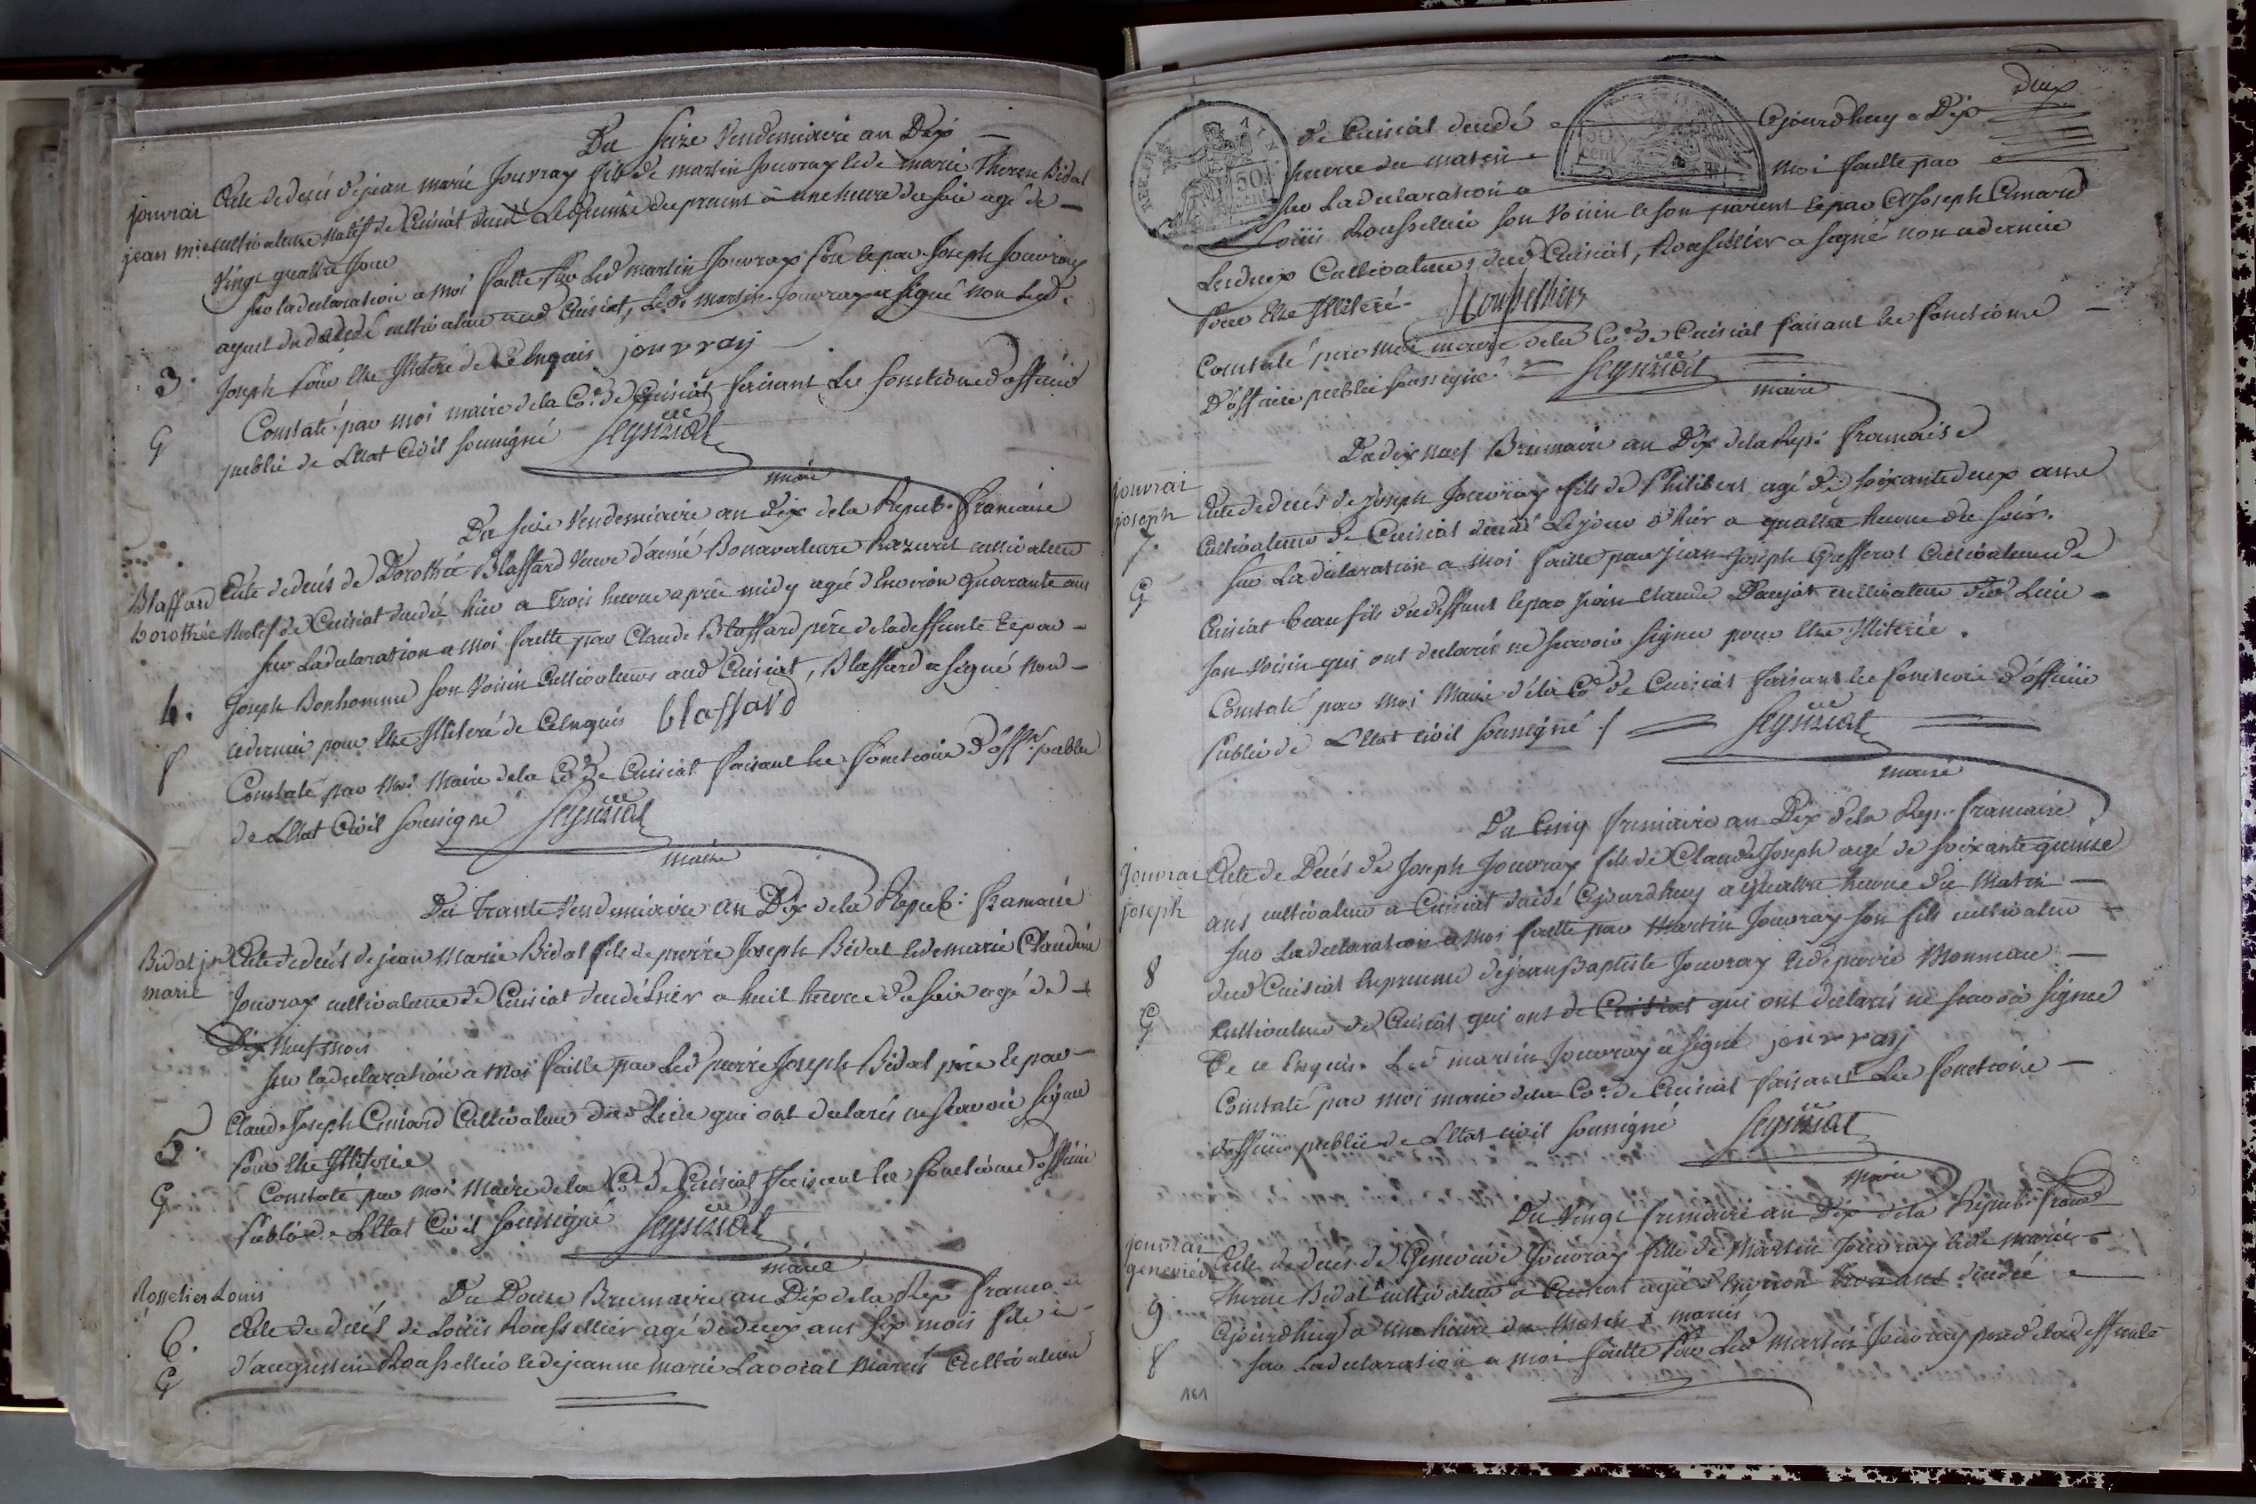 Du Seize Vendemiaire an Dix
jouvrai
jean m.ie
3.
G
Acte de deces de jean marie Jouvray fils de martin Jouvray et de marie Therese Bidat
cultivateurs natif de Cuisiat decedé Le quinze du present à une heure du soir agé de
vingt quatre jour
Sur la declaration a moi faitte par Led martin Jouvray et par Joseph Jouvray
ayeul du decedé cultivateur aud Cuisiat, Led martin Jouvray a signé non Led.
Joseph pour être Illiteré de Ce Enquis jouvray
Constaté par moi maire de la Co.e de Cuisiat faisant les fonctions d'officier
public de L'Etat Civil soussigné Seyssuat
maire
Du seize Vendemiaire an dix de la Repub. francaise
Blaffard
dorothée
4.
f
Acte de deces de Dorothée Blaffard veuve d'aimé Bonnaventure Razurel cultivateur
Natif de Cuisiat decedée hier a Trois heures après midy agée d'Environ Quarante ans
Sur La declaration a moi faitte par Claude Blaffard père de la deffunte Et par
Joseph Bonhomme son voisin Cultivateurs aud Cuisiat, Blaffard a signé non
cedernier pour être Illiteré de Ce enquis blaffard
Constaté par Moi Maire de la Co.e de Cuisiat faisant les fonctions d'off.er public
de L'Etat Civil soussigné Seyssuat
maire
Du Trante Vendemiaire an Dix de la Repub. francaise
Bidat jn
marie
5.
G
Acte de deces de jean Marie Bidat fils de pierre Joseph Bidat et de marie Claudine
Jouvray cultivateurs de Cuisiat decedé hier a huit heures du soir agé de
Dix huit mois
Sur la declaration a moi faitte par Led pierre Joseph Bidat père Et par
Claude Joseph Cuniard Cultivateurs dud Lieu qui ont declarés ne scavoir signer
pour être Illiterés
Constaté par moi Maire de la Co.e de Cuisiat faisant les fonctions d'officier
Public de L'Etat Civil soussigné Seyssuat
maire
Rosselier Louis
6.
G
Du Douze Brumaire an Dix de la Rep francaise
Acte de deces de Loüis Roussellier agé de deux ans six mois fils
d'augustin Roussellier et de jeanne marie Lavocat Mariés Cultivateurs
deux
de Cuisiat decedé Cejourdhuy a Dix
heures du matin
Sur La declaration a Moi faitte par
Loüis Rousselier son voisin et son parent et par C. Joseph Cunard
Les deux Cultivateurs dud Cuisiat, Roussellier a signé non cedernier
pour être Illiteré. Rousselliers
Constaté par moi maire de la Co.e de Cuisiat faisant les fonctions
D'officier public soussigné Seyssuat
maire
Du dix neuf Brumaire an Dix de la Rep. francaise
jouvrai
joseph
7.
G
Acte de deces de joseph Jouvray fils de Philibert agé de soixante deux ans
Cultivateur de Cuisiat decedé Le jour d'hier a quatre heures du soir.
Sur La declaration a moi faitte par jean Joseph Greffet Cultivateur de
Cuisiat beau fils du deffunt et par jean Claude Daujat cultivateur dud Lieu
son voisin qui ont declarés ne scavoir signer pour être Illiterés.
Constaté par moi Maire de la Co.e de Cuisiat faisant les fonctions d'officier
Public de L'Etat civil soussigné Seyssuat
maire
Du Cinq frimaire an Dix de la Rep. francaise
Jouvrai
joseph
8
G
Acte de Deces de Joseph Jouvray fils de Claude Joseph agé de soixante quinze
ans cultivateur a Cuisiat decedé Cejourdhuy a quatre heures du Matin
Sur La declaration a moi faitte par Martin Jouvray son fils cultivateur
dud Cuisiat En presence de jean Baptiste Jouvray et de pierre Monmeau
Cultivateurs de Cuisiat qui ont de Cuisiat qui ont declarés ne scavoir signer
De ce Enquis. Led martin Jouvray a signé jouvray
Constaté par moi maire de la Co.e de Cuisiat faisant Les fonctions
d'officier public de L'Etat civil soussigné Seyssuat
maire
Du Vingt frimaire an Dix de la Republ. france
jouvrai
genevieve
9
f
Acte de deces de Genevieve Jouvray fille de Martin Jouvray et de marie
therese Bidat cultivateurs a Cuisiat agée d'Environ trois ans decedée
Cejourdhuy a une heure du Matin mariés
Sur La declaration a moi faitte par Led Martin Jouvray père de la deffunte
161
50
50 cent